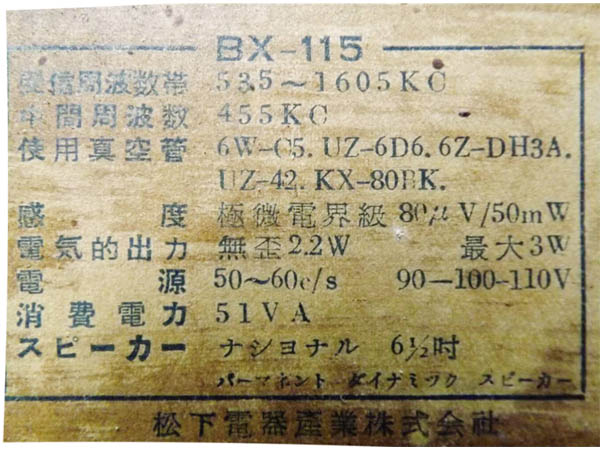 BX-115
受信周波数帯 535~1605KC
中間周波数 455KC
使用真空管 6W-C5. UZ-6D6. 6Z-DH3A.
UZ-42. KX-80BK.
感度 極微電界級 80μV/50mW
電気的出力 無歪2.2W 最大3W
電源 50~60c/s 90-100-110V
消費電力 51VA
スピーカー ナショナル 6½吋
パーマネント ダイナミック スピーカー
松下電器産業株式会社